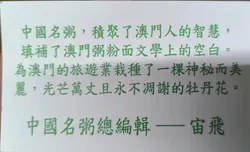 中國名粥，積聚了澳門人的智慧，
填補了澳門粥粉面文學上的空白。
為澳門的旅遊業栽種了一棵神秘而美
麗，光芒萬丈且永不凋謝的牡丹花。
中國名粥總編輯——宙飛